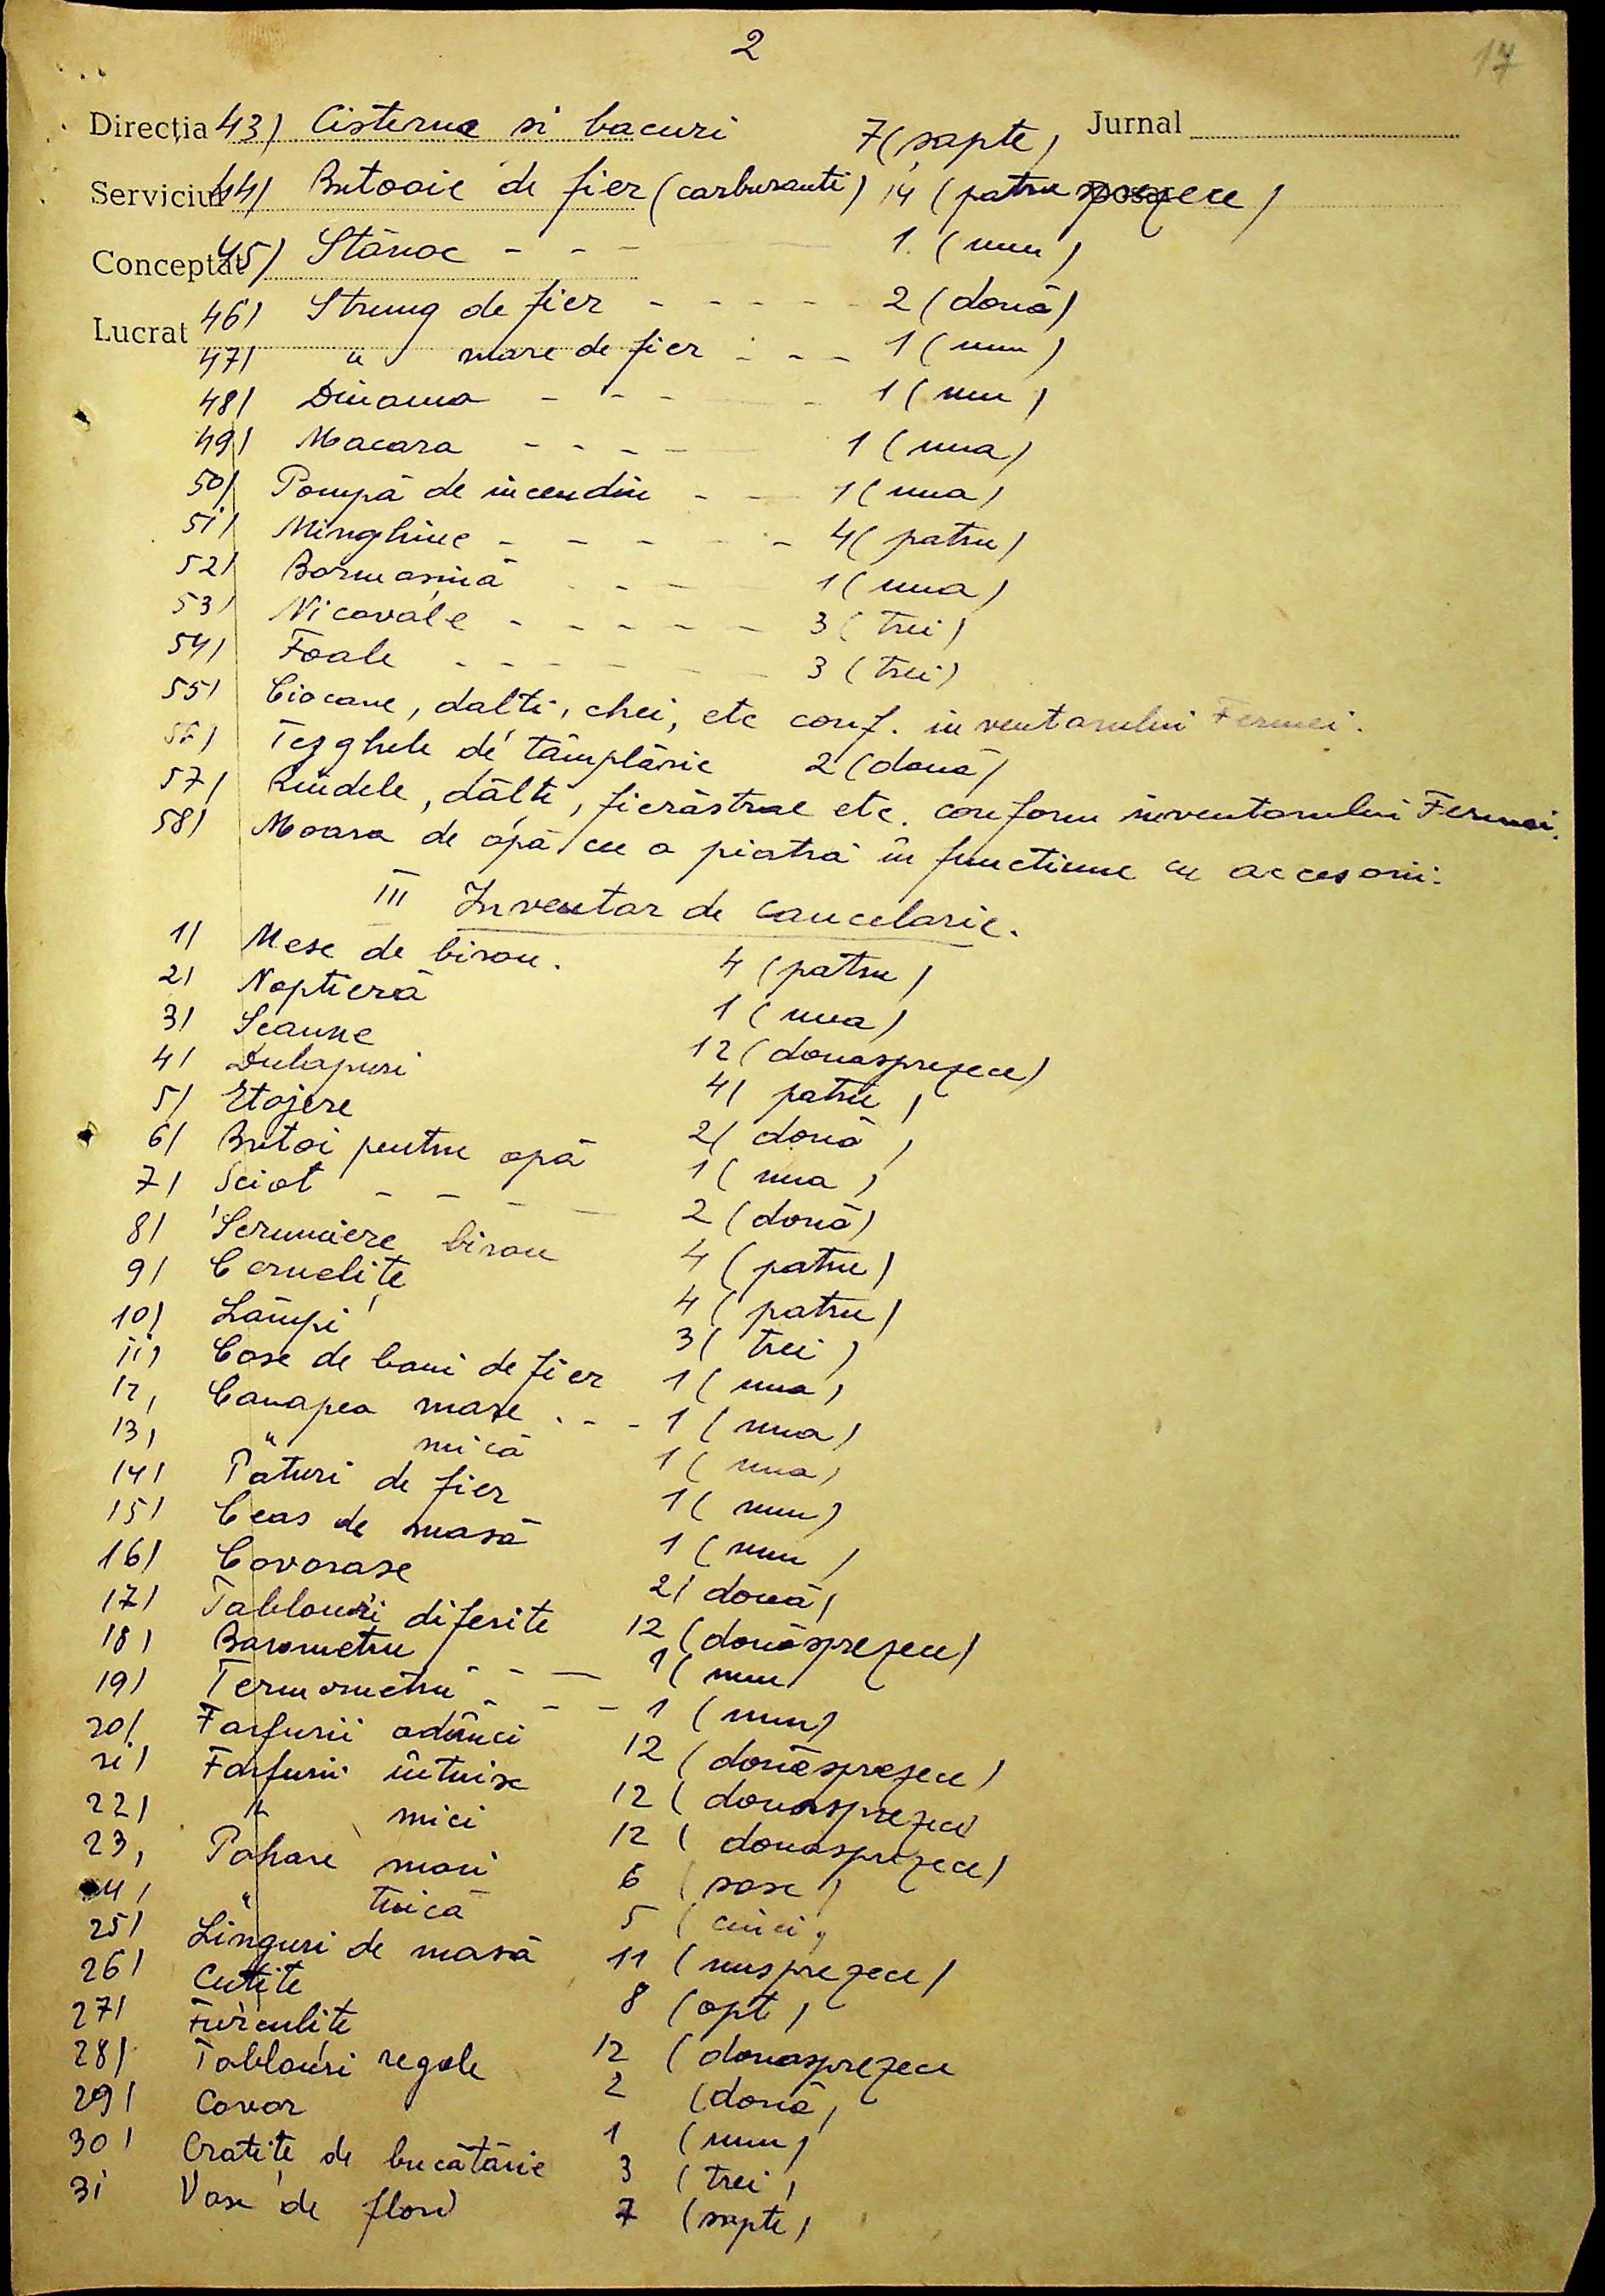 2
17
Direcția 43) Cisterne si bacuri 7 (șapte) Jurnal
Serviciul 44) Butoaie de fier (carburanti) 14 (patrusprezece)
Conceptat 45) Stănoc - - - 1 (unu)
46) Strung de fier - - - - 2 (două)
Lucrat
47) " mare de fier - - - 1 (unu)
48) Dinama - - - - 1 (unu)
49) Macara - - - - 1 (una)
50) Pompă de incendiu - - 1 (una)
51) Minghine - - - - - 4 (patru)
52) Bormașină - - - 1 (una)
53) Nicovale - - - - - 3 (trei)
54) Foale - - - - - 3 (trei)
55) Ciocane, dalti, chei, etc conf. inventarului Fermei.
56) Tezghele de tâmplărie 2 (două)
57) Rindele, dălti, fierăstrae etc. conform inventarului Fermei.
58) Moara de apă cu o piatră în functiune cu accesorii.
III Inventar de cancelarie.
1) Mese de birou. 4 (patru)
2) Noptieră 1 (una)
3) Scaune 12 (douasprezece)
4) Dulapuri 4 ( patru )
5) Etajere 2 ( două )
6) Butoi pentru apă 1 ( una )
7) Sciot - - - - 2 (două)
8) Scrumiere birou 4 (patru)
9) Cernelițe 4 ( patru)
10) Lămpi 3 ( trei )
11) Case de bani de fier 1 ( una )
12) Canapea mare . - - 1 ( una )
13) " mică 1 ( una )
14) Paturi de fier 1 ( unu )
15) Ceas de masă 1 ( unu )
16) Covorase 2 ( două )
17) Tablouri diferite 12 (douăsprezece)
18) Barometru - - - 1 ( unu
19) Termometru - - - 1 ( unu)
20) Farfurii adânci 12 (douăsprezece)
21) Farfurii întinse 12 ( douasprezece)
22) " mici 12 ( douasprezece)
23) Pahare mari 6 ( sase )
24) " tuică 5 ( cinci )
25) Linguri de masă 11 ( unsprezece)
26) Cutite 8 (opt)
27) Furculițe 12 (douasprezece
28) Tablouri regale 2 (două)
29) Covor 1 (unu)
30) Cratițe de bucătărie 3 (trei)
31 Vase de flori 7 (sapte)